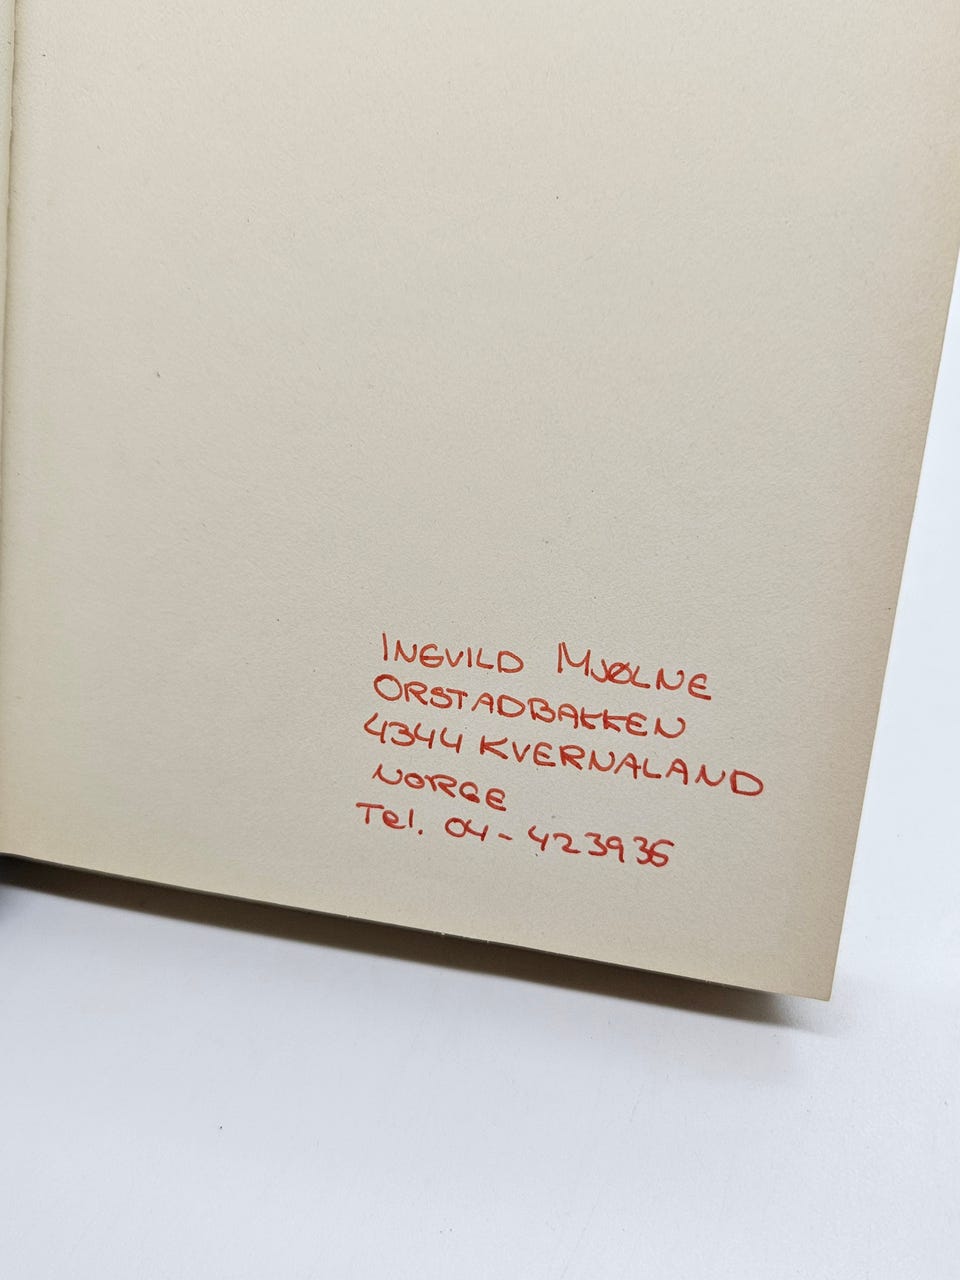 INGVILD MJØLNE
ORSTADBAKKEN
4344 KVERNALAND
NORGE
Tel. 04-423936